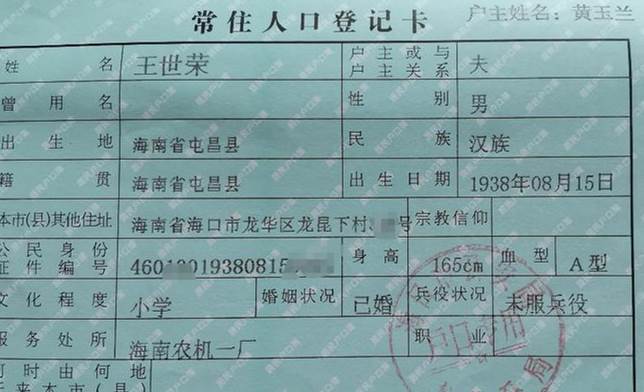 常住人口登记卡
户主姓名：黄玉兰
姓名 王世荣 户主或与户主关系 夫
曾用名 性别 男
出生地 海南省屯昌县 民族 汉族
籍贯 海南省屯昌县 出生日期 1938年08月15日
本市(县)其他住址 海南省海口市龙华区龙昆下村 号 宗教信仰
公民身份证件编号 460 019380815 身高 165cm 血型 A型
文化程度 小学 婚姻状况 已婚 兵役状况 未服兵役
服务处所 海南农机一厂 职业
何时由何地
迁来本市(县)
户口专用